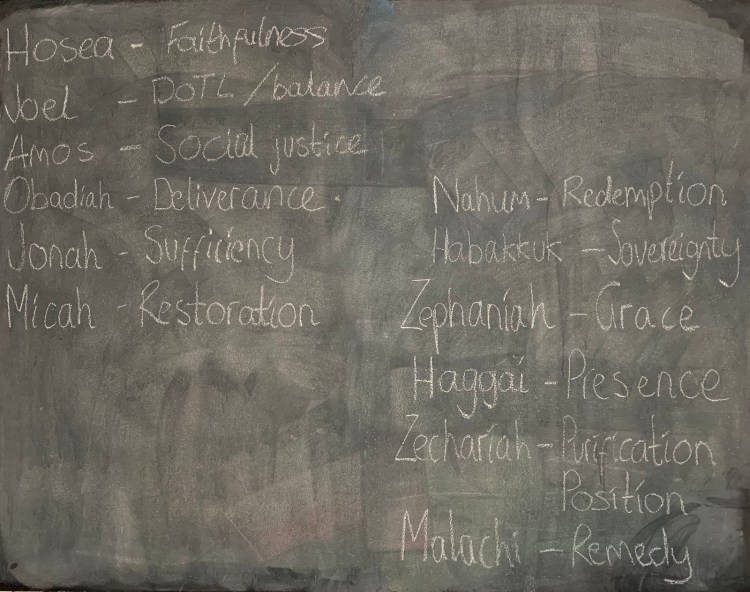 Hosea - Faithfulness
Joel - DOTL / balance
Amos - Social justice
Obadiah - Deliverance.
Jonah - Sufficiency
Micah - Restoration
Nahum - Redemption
Habakkuk - Sovereignty
Zephaniah - Grace
Haggai - Presence
Zechariah - Purification
Position
Malachi - Remedy